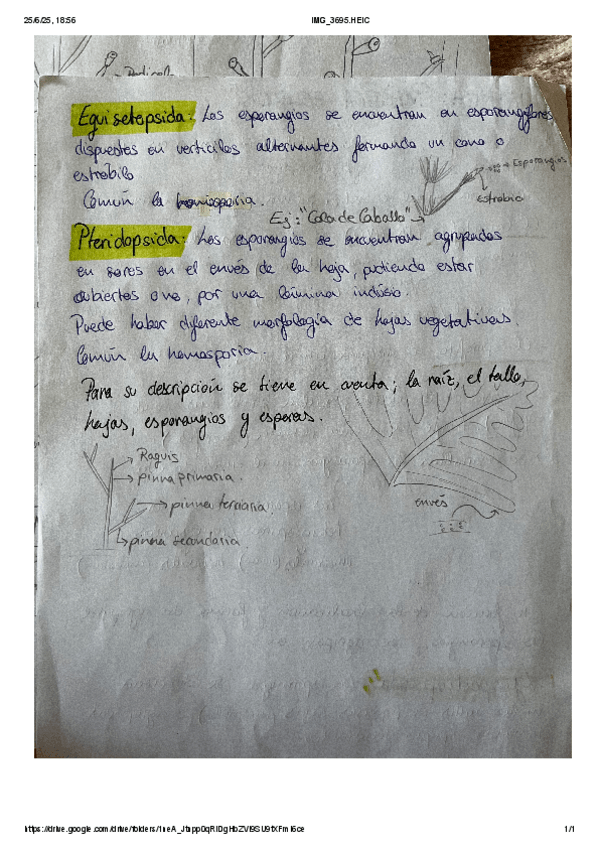 25/6/25, 18:56
IMG_3695.HEIC
Equisetopsida: Los esporangios se encuentran en esporangióforos
dispuestos en verticilos alternantes formando un cono o
estróbilo
Común la homosporia.
Esporangios
estróbilo
Ej: "Cola de Caballo"
Pteridopsida: Los esporangios se encuentran agrupados
en soros en el envés de la hoja, pudiendo estar
cubiertos o no, por una lámina indusio.
Puede haber diferente morfología de hojas vegetativas.
Común la homosporia.
Para su descripción se tiene en cuenta; la raíz, el tallo,
hojas, esporangios y esporas.
Raquis
pinna primaria.
pinna terciaria
pinna secundaria.
envés
1/1